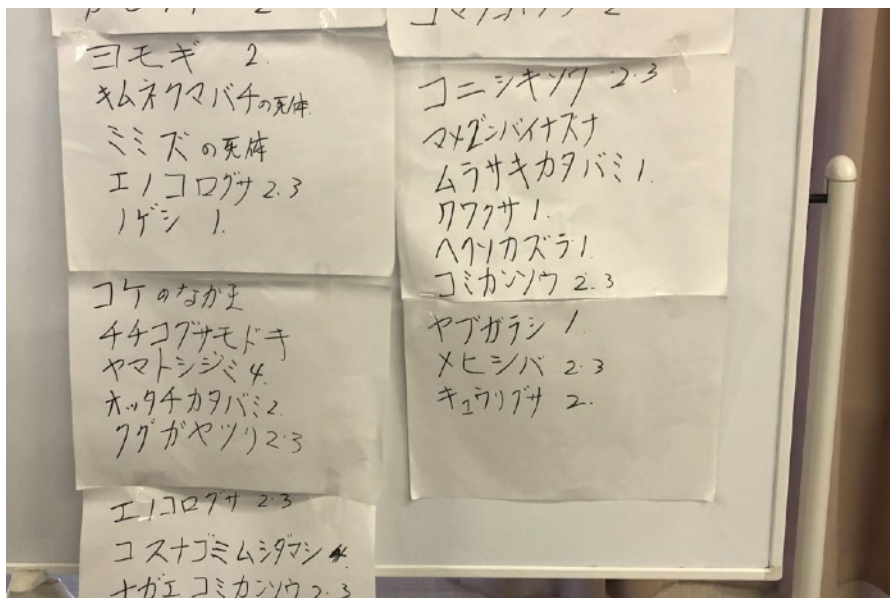 ヨモギ 2.
キムネクマバチの死体
ミミズの死体
エノコログサ 2.3
ノゲシ 1.
コケのなかま
チチコグサモドキ
ヤマトシジミ 4.
オッタチカタバミ 2.
クグガヤツリ 2.3
エノコログサ 2.3
コスナゴミムシダマシ 4.
ナガエコミカンソウ 2.3
コニシキソウ 2.3
マメグンバイナズナ
ムラサキカタバミ 1.
クワクサ 1.
ヘクソカズラ 1.
コミカンソウ 2.3
ヤブガラシ 1.
メヒシバ 2.3
キュウリグサ 2.